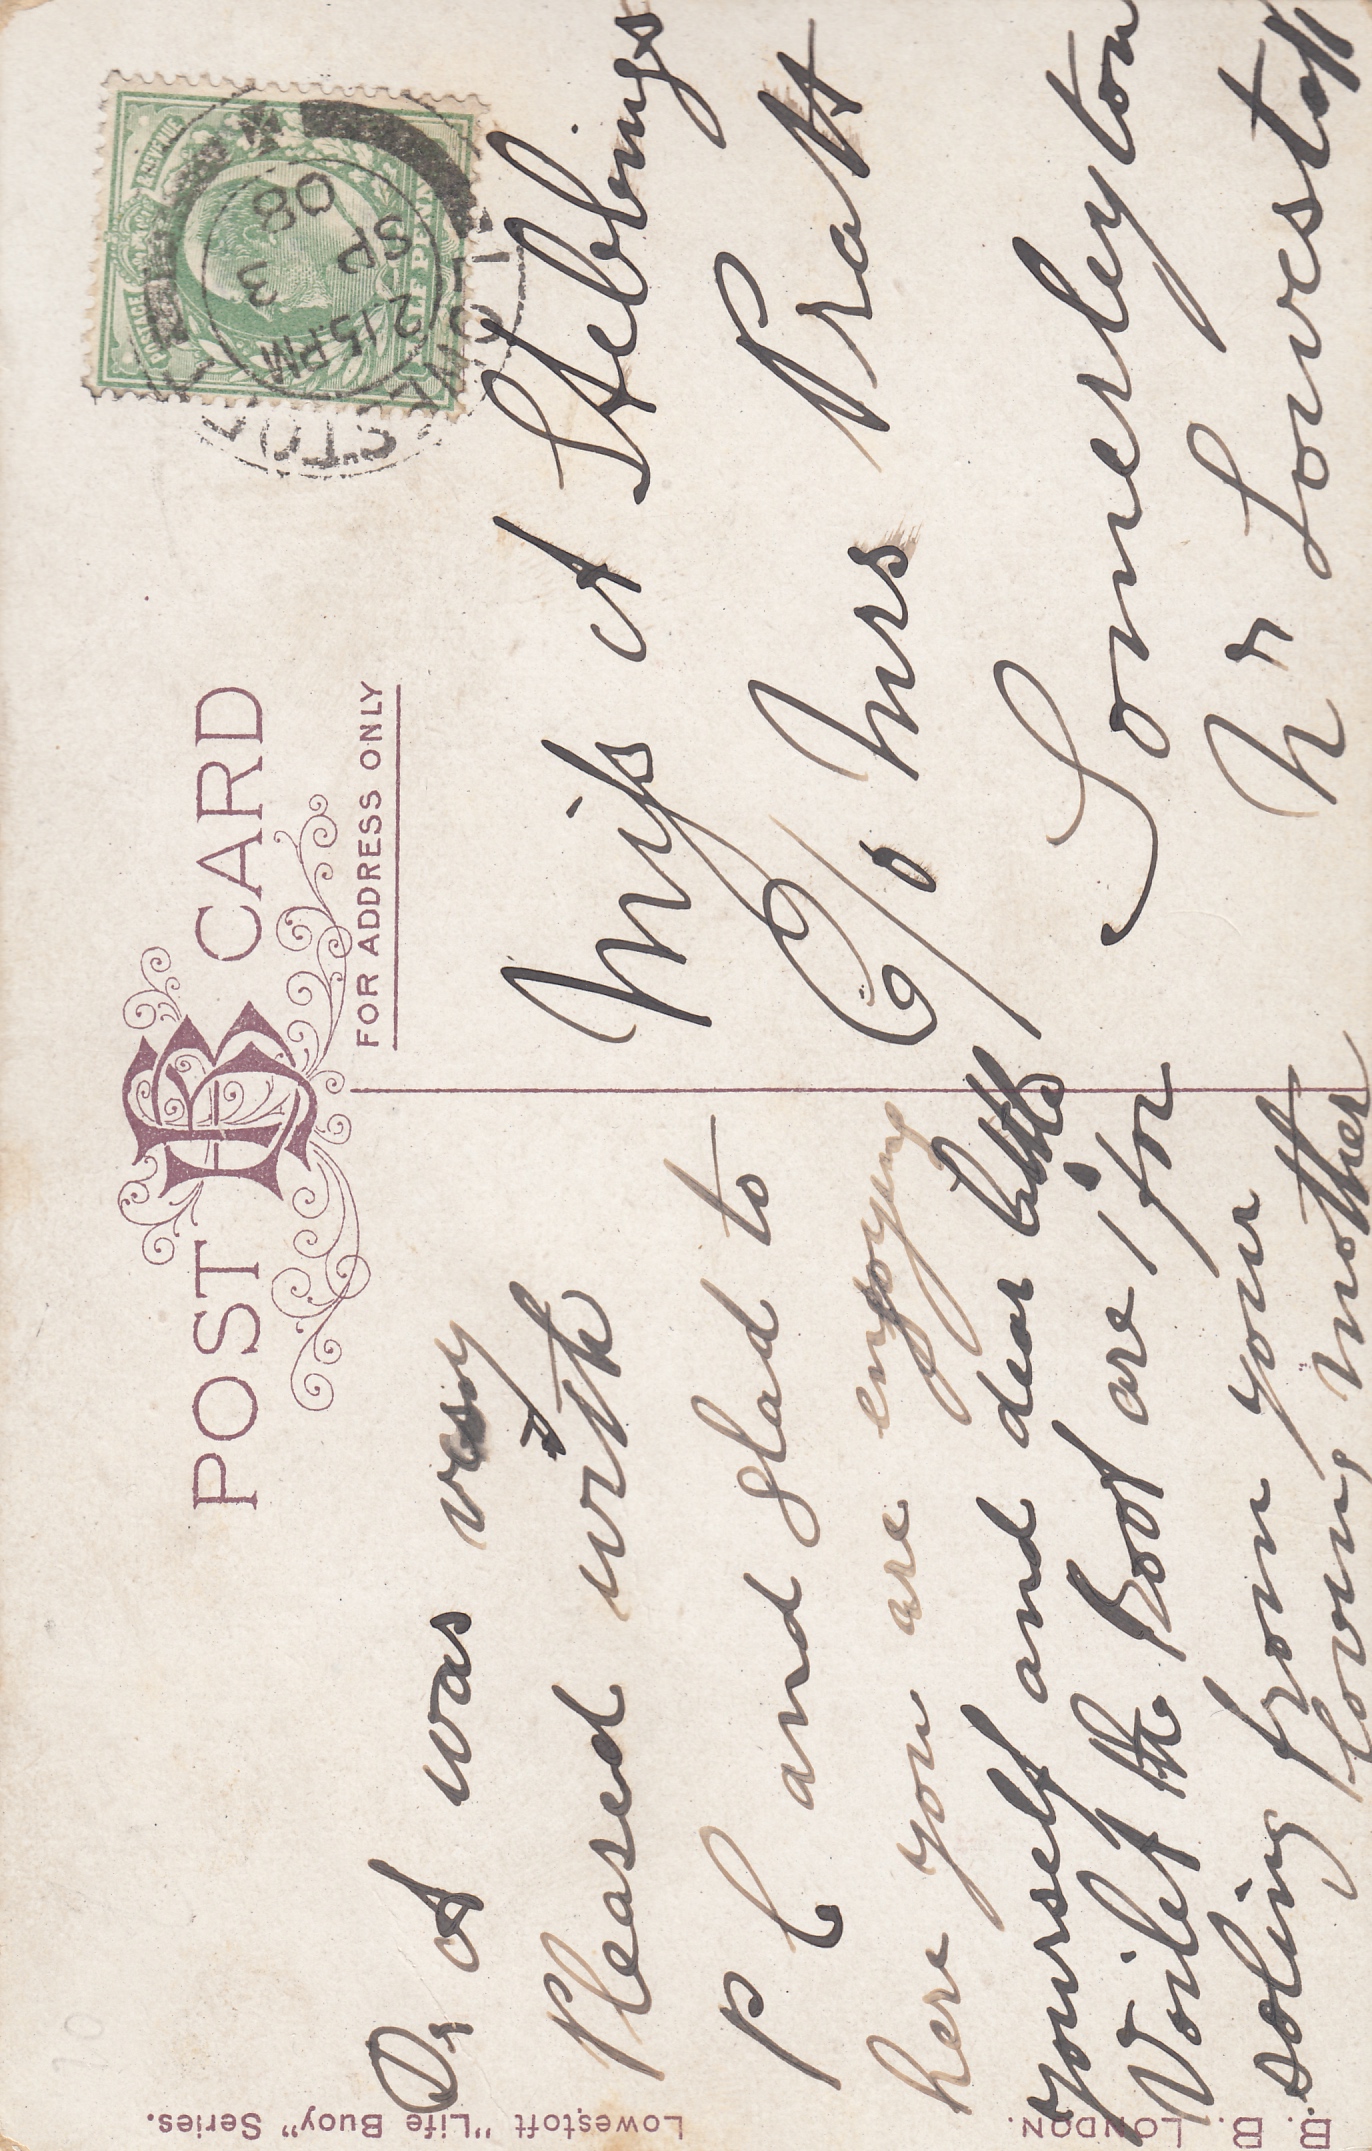 POST CARD
FOR ADDRESS ONLY
POSTAGE & REVENUE
LOWESTOFT
2.15 PM
SP 3
08
Dr A was very
Pleased with
P C and glad to
here you are enyoying
yourself and dear little
Voilet the Boot are 1/ for
soling from your
loving mother
Miss A Stebbings
C/o Mrs Pratt
Somerleyton
Nr Lowestoft
Lowestoft "Life Buoy" Series.
B. B. LONDON.